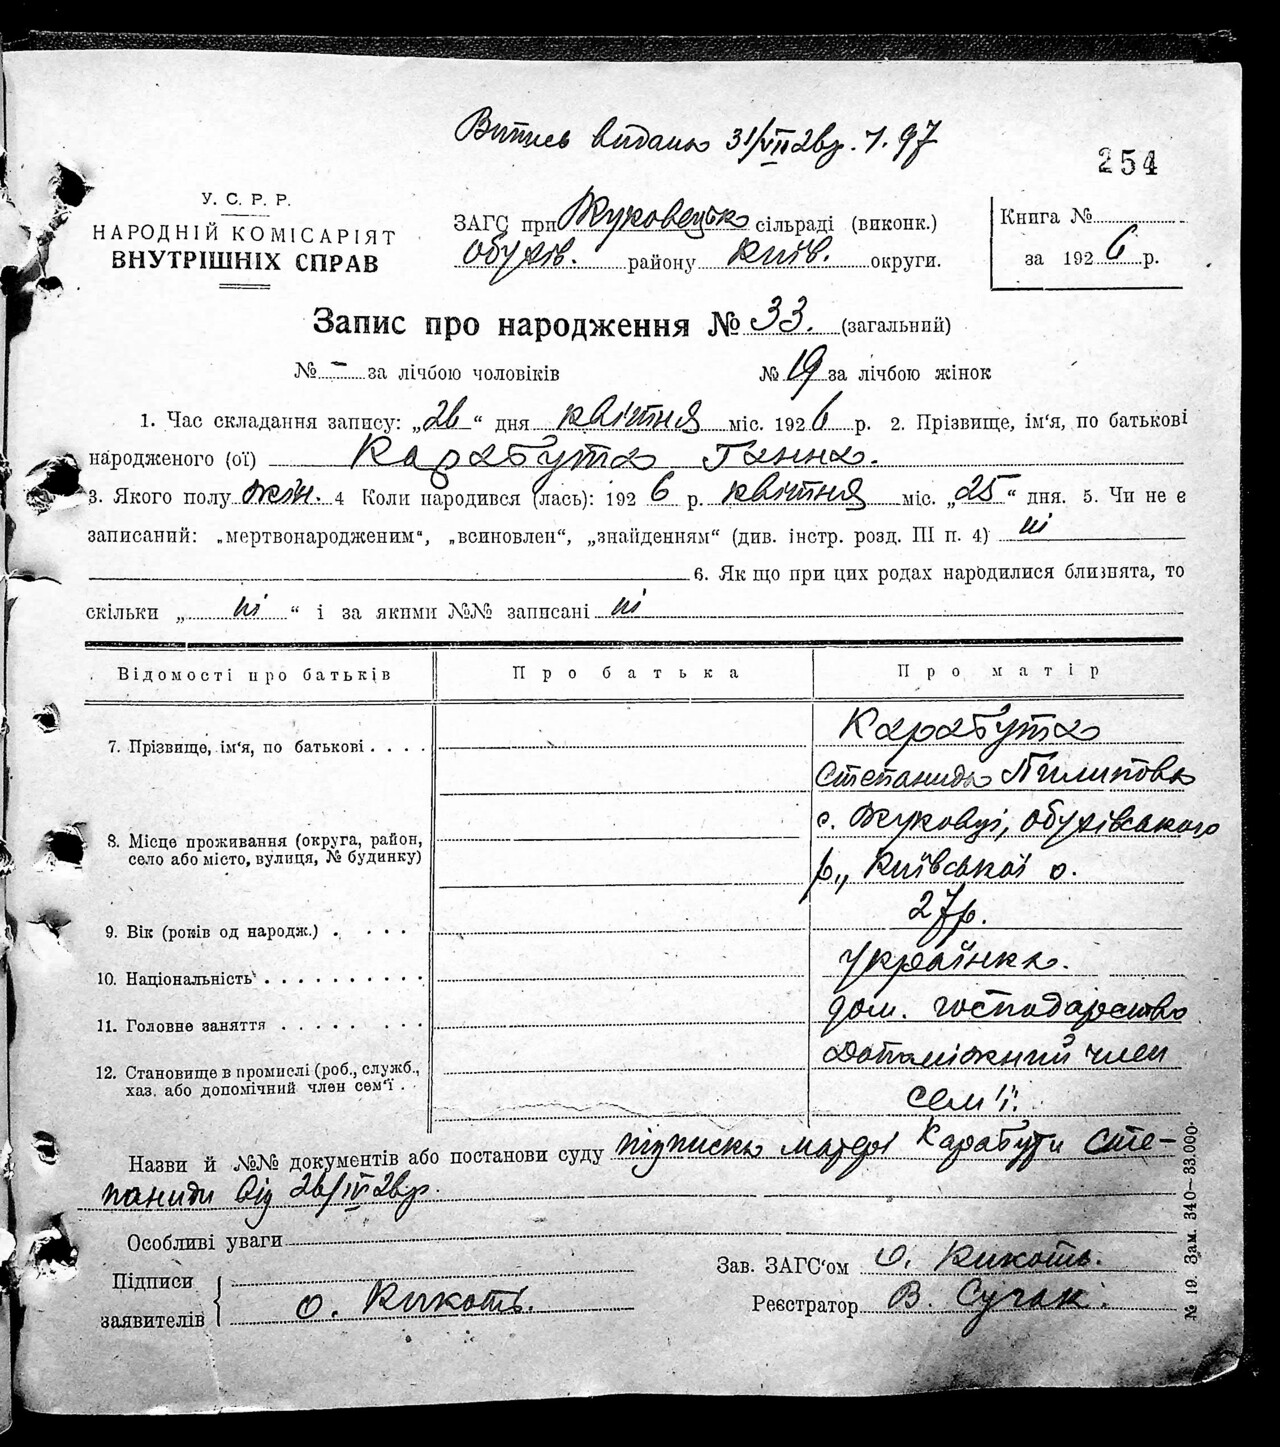 Витись видано 31/VII 26р. 1. 97
254
У. С. Р. Р.
НАРОДНІЙ КОМІСАРІЯТ
ВНУТРІШНІХ СПРАВ
ЗАГС при Жуковецько сільраді (виконк.)
Обухів. району Київ. округи.
Книга №
за 1926 р.
Запис про народження № 33. (загальний)
№ - за лічбою чоловіків № 19 за лічбою жінок
1. Час складання запису: „26“ дня квітня міс. 1926 р. 2. Прізвище, ім‘я, по батькові
народженого (ої) Карабута Ганна.
3. Якого полу жін. 4 Коли народився (лась): 1926 р. квітня міс. „25“ дня. 5. Чи не є
записаний: „мертвонародженим“, „всиновлен“, „знайденням“ (див. інстр. розд. III п. 4) ні
6. Як що при цих родах народилися близнята, то
скільки „ ні “ і за якими №№ записані ні
Відомості про батьків Про батька Про матір
7. Прізвище, ім‘я, по батькові . . . . Карабута
Степанида Пилипова
8. Місце проживання (округа, район,
село або місто, вулиця, № будинку)
с. Жуковці, Обухівського
р., Київської о.
9. Вік (років од народж.) . . . . 27р.
10. Національність . . . . . . . . . . українка.
11. Головне заняття . . . . . . . . дом. господарство
12. Становище в промислі (роб., служб.,
хаз. або допомічний член сем‘ї . .
допоміжний член
сем'ї.
Назви й №№ документів або постанови суду підписка матері Карабути Сте-
паниди від 26/IV 26р.
Особливі уваги
Підписи
заявителів
О. Кикоть.
Зав. ЗАГС‘ом О. Кикоть.
Реєстратор В.
№ 19. Зам. 340—33.000.